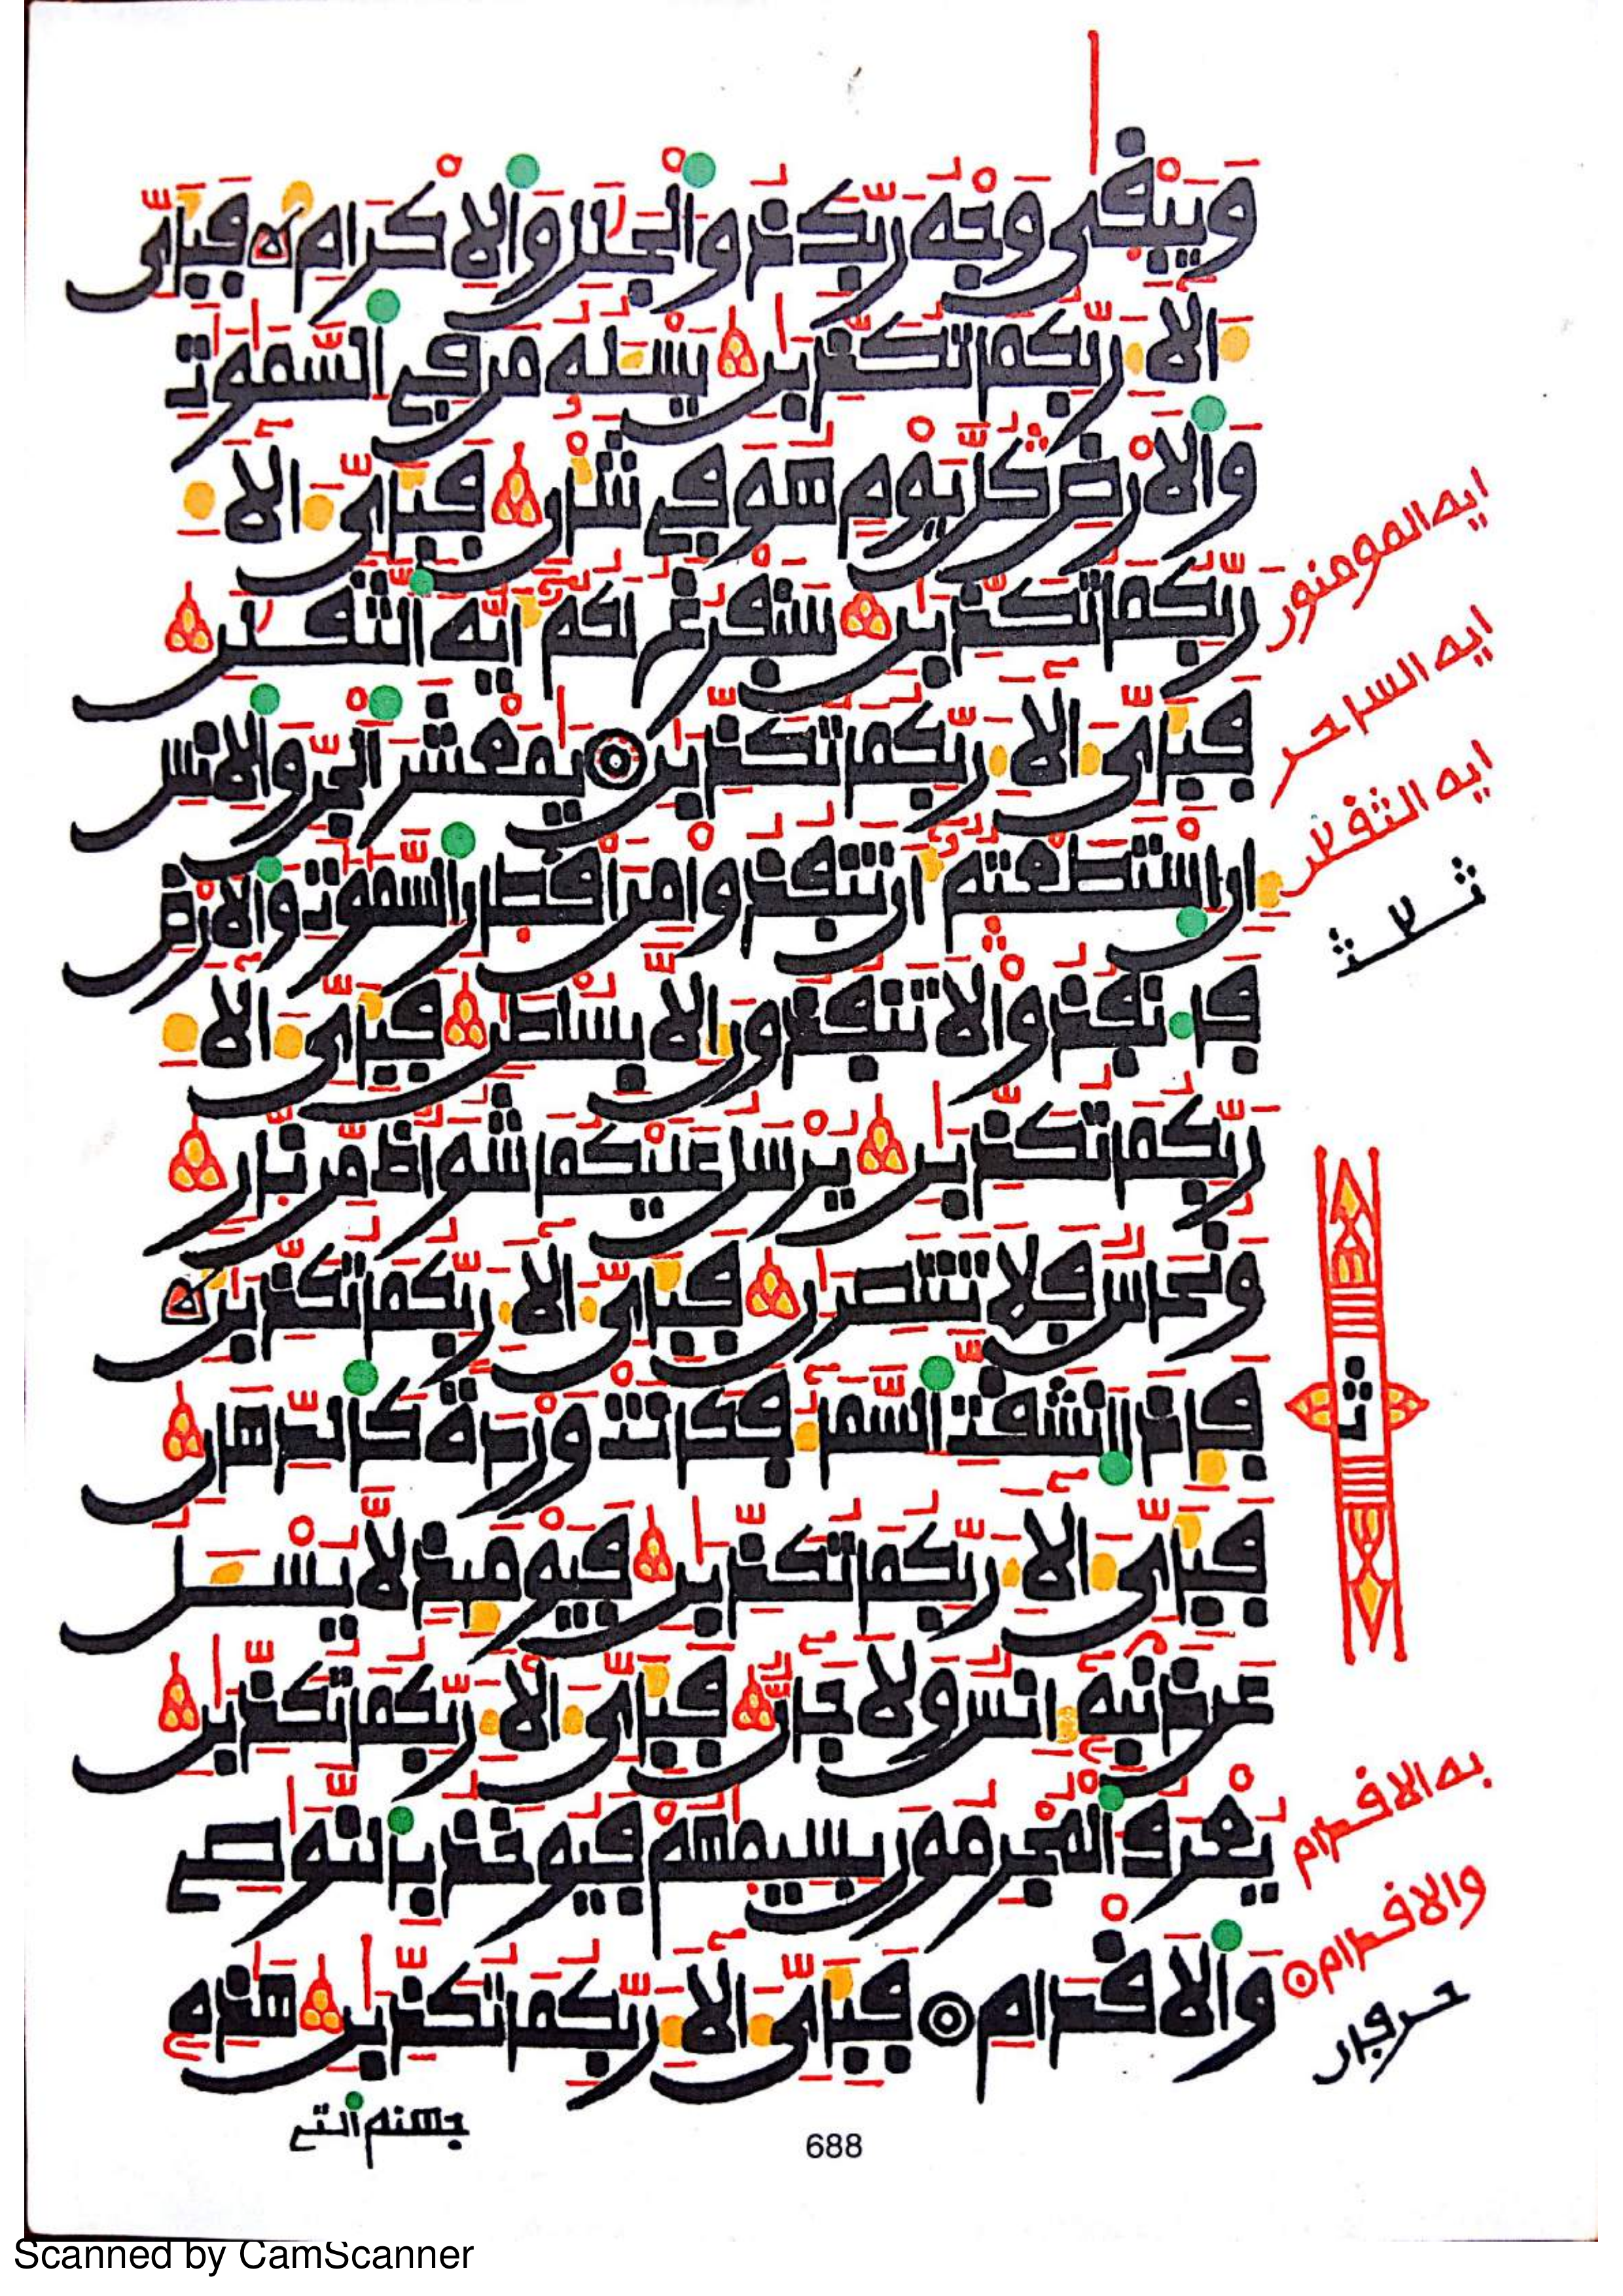 وَيَبْقٜى وَجْهُ رَبِّكَ ذُو الْجَلَٰلِ وَالْإِكْرَامِ فَبِأَيِّ
ءَالَآءِ رَبِّكُمَا تُكَذِّبَٰنِ يَسْـَٔلُهُ مَن فِي السَّمَٰوَٰتِ
وَالْأَرْضِ كُلَّ يَوْمٍ هُوَ فِي شَأْنٍ فَبِأَيِّ ءَالَآءِ
رَبِّكُمَا تُكَذِّبَٰنِ سَنَفْرُغُ لَكُمُۥٓ أَيُّهَ الثَّقَلَٰنِ
فَبِأَيِّ ءَالَآءِ رَبِّكُمَا تُكَذِّبَٰنِ يَٰمَعْشَرَ الْجِنِّ وَالْإِنسِ
إِنِ اسْتَطَعْتُمُۥٓ أَن تَنفُذُوا مِنْ أَقْطَارِ السَّمَٰوَٰتِ وَالْأَرْضِ
فَانفُذُوا لَا تَنفُذُونَ إِلَّا بِسُلْطَٰنٍ فَبِأَيِّ ءَالَآءِ
رَبِّكُمَا تُكَذِّبَٰنِ يُرْسَلُ عَلَيْكُمَا شُوَاظٌ مِّن نَّارٍ
وَنُحَاسٌ فَلَا تَنتَصِرَٰنِ فَبِأَيِّ ءَالَآءِ رَبِّكُمَا تُكَذِّبَٰنِ
فَإِذَا انشَقَّتِ السَّمَآءُ فَكَانَتْ وَرْدَةً كَالدِّهَانِ
فَبِأَيِّ ءَالَآءِ رَبِّكُمَا تُكَذِّبَٰنِ فَيَوْمَئِذٍ لَّا يُسْـَٔلُ
عَن ذَنۢبِهِۦٓ إِنسٌ وَلَا جَآنٌّ فَبِأَيِّ ءَالَآءِ رَبِّكُمَا تُكَذِّبَٰنِ
يُعْرَفُ الْمُجْرِمُونَ بِسِيمَٰهُمْ فَيُوخَذُ بِالنَّوَٰصِي
وَالْأَقْدَامِ فَبِأَيِّ ءَالَآءِ رَبِّكُمَا تُكَذِّبَٰنِ هَٰذِهِۦ
جهنم التي
ايه المومنون
ايه الساحر
ايه الثقلن
ث
به الاقدام
والاقدام
688
Scanned by CamScanner